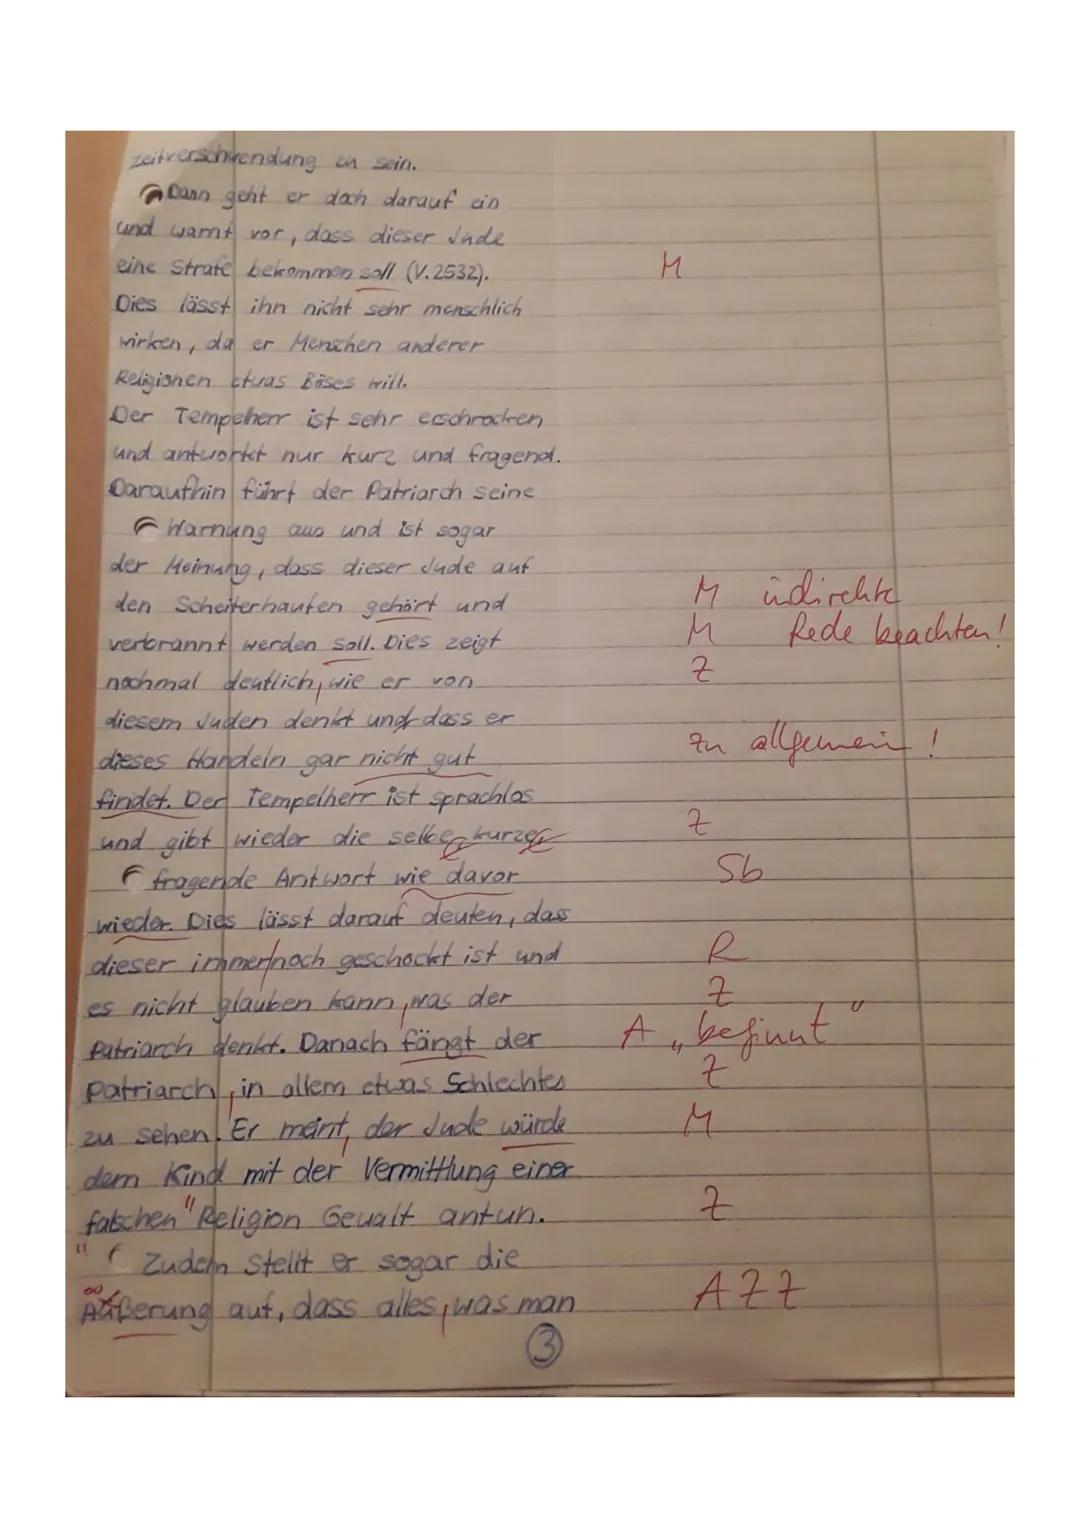 zeitverschwendung zu sein.
Dann geht er doch darauf ein
und warnt vor, dass dieser Jude
eine Strafe bekommen soll (V.2532). M
Dies lässt ihn nicht sehr menschlich
wirken, da er Menschen anderer
Religionen etwas Böses will.
Der Tempelherr ist sehr erschrocken
und antwortet nur kurz und fragend.
Daraufhin führt der Patriarch seine
Warnung aus und ist sogar
der Meinung, dass dieser Jude auf
den Scheiterhaufen gehört und M indirekte
verbrannt werden soll. Dies zeigt M Rede beachten!
nochmal deutlich, wie er von Z
diesem Juden denkt und dass er
dieses Handeln gar nicht gut zu allgemein!
findet. Der Tempelherr ist sprachlos
und gibt wieder die selbe, kurze, Z
fragende Antwort wie davor Sb
wieder. Dies lässt darauf deuten, dass
dieser immer noch geschockt ist und R
es nicht glauben kann, was der Z
Patriarch denkt. Danach fängt der A „beginnt“
Patriarch, in allem etwas Schlechtes Z
zu sehen. Er meint, der Jude würde M
dem Kind mit der Vermittlung einer
"falschen" Religion Gewalt antun. Z
Zudem stellt er sogar die
Äußerung auf, dass alles, was man A Z Z
3